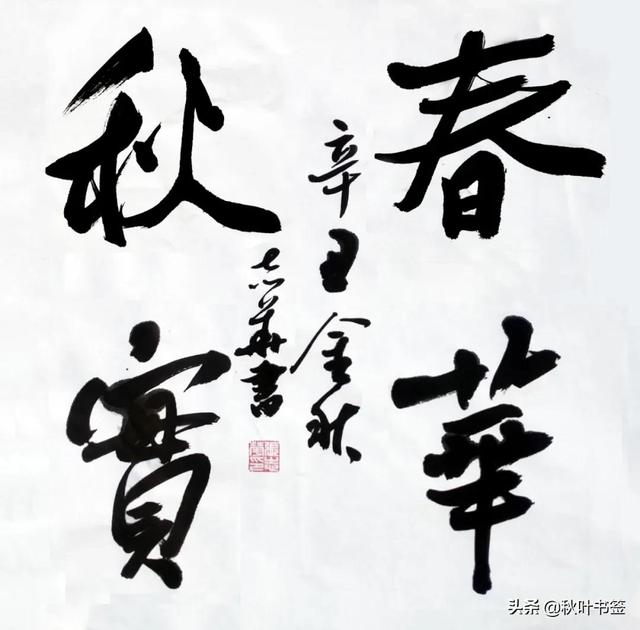 春華
秋實
辛丑金秋
志華書
头条 @秋叶书签